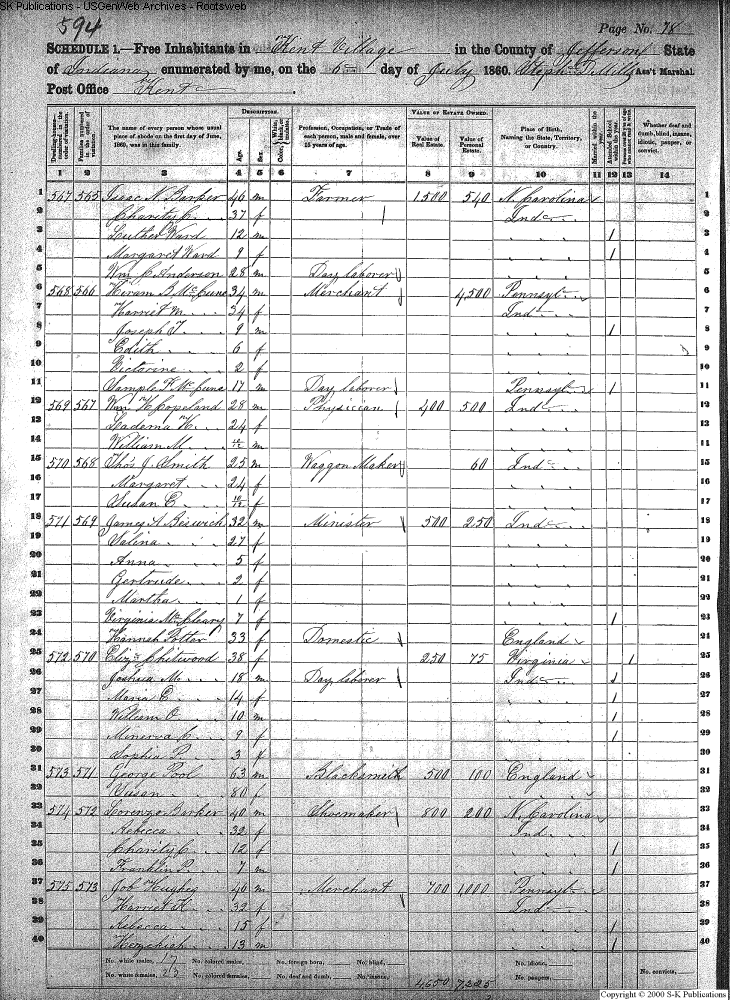 SK Publications - USGenWeb Archives - Rootsweb
594
Page No. 78
SCHEDULE 1.—Free Inhabitants in Kent Village in the County of Jefferson State
of Indiana enumerated by me, on the 6 day of July 1860. Ass't Marshal.
Post Office Kent
DESCRIPTION. VALUE OF ESTATE OWNED.
Dwelling-houses—numbered in the order of visitation. Families numbered in the order of visitation. The name of every person whose usual place of abode on the first day of June, 1860, was in this family. Age. Sex. Color, White, black, or mulatto. Profession, Occupation, or Trade of each person, male and female, over 15 years of age. Value of Real Estate. Value of Personal Estate. Place of Birth, Naming the State, Territory, or Country. Married within the year. Attended School within the year. Whether deaf and dumb, blind, insane, idiotic, pauper, or convict.
1 2 3 4 5 6 7 8 9 10 11 12 13 14
1 567 565 Isaac N. Barker 46 m Farmer 1500 540 N. Carolina 1
2 Charity C. 37 f Ind 2
3 Luther Ward 12 m 1 3
4 Margaret Ward 9 f 1 4
5 Wm C Anderson 28 m Day laborer 5
6 568 566 Hiram B McCune 34 m Merchant 4,500 Pennsyl 6
7 Harriet M. 34 f Ind 7
8 Joseph T. 9 m 1 8
9 Edith 6 f 9
10 Victorine 2 f 10
11 Sample F. McCune 17 m Day laborer Pennsyl 1 11
12 569 567 Wm H Copeland 28 m Physician 400 500 Ind
13 24 f
14 William M. m
15 570 568 Thos J. Smith 25 m Waggon Maker 60 Ind 15
16 Margaret 24 f 16
17 Susan E. f 17
18 571 569 James A Beswich 32 m Minister 500 250 Ind 18
19 Salina 27 f 19
20 Anna 5 f 20
21 Gertrude 2 f 21
22 Martha 1 f 22
23 Virginia McCleary 7 f 1 23
24 Hannah Potter 33 f Domestic England 24
25 572 570 Eliz Chitwood 38 f 250 75 Virginia 1 25
26 Joshua M. 18 m Day laborer Ind 1 26
27 Maria E. 14 f 1 27
28 William O. 10 m 1 28
29 Minerva C. 9 f 1 29
30 Sophia P. 3 f 30
31 573 571 George Pool 63 m Blacksmith 500 100 England 31
32 Susan 80 f 32
33 574 572 Lorenzo Barker 40 m Shoemaker 800 200 N. Carolina 33
34 Rebecca 32 f Ind 34
35 Charity C. 12 f 1 35
36 Franklin P. 7 m 1 36
37 575 573 Job Hughes 46 m Merchant 700 1,000 Pennsyl 37
38 Harriet K. 32 f Ind 38
39 Rebecca 15 f 1 39
40 Hezekiah 13 m 1 40
No. white males, 17 No. colored males, No. foreign born, No. blind, No. idiotic,
No. white females, 23 No. colored females, No. deaf and dumb, No. insane, 4650 7225 No. paupers, No. convicts,
Copyright © 2000 S-K Publications